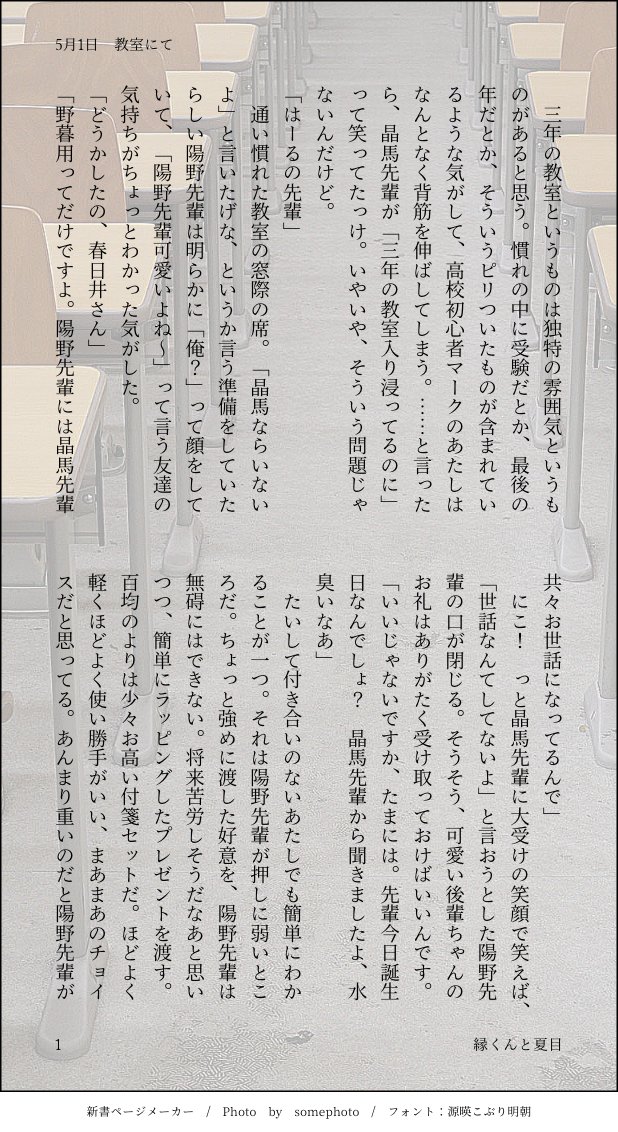 5月1日　教室にて
　三年の教室というものは独特の雰囲気というも
のがあると思う。慣れの中に受験だとか、最後の
年だとか、そういうピリついたものが含まれてい
るような気がして、高校初心者マークのあたしは
なんとなく背筋を伸ばしてしまう。……と言った
ら、晶馬先輩が「三年の教室入り浸ってるのに」
って笑ってたっけ。いやいや、そういう問題じゃ
ないんだけど。
「はーるの先輩」
　通い慣れた教室の窓際の席。「晶馬ならいない
よ」と言いたげな、というか言う準備をしていた
らしい陽野先輩は明らかに「俺？」って顔をして
いて、「陽野先輩可愛いよね〜」って言う友達の
気持ちがちょっとわかった気がした。
「どうかしたの、春日井さん」
「野暮用ってだけですよ。陽野先輩には晶馬先輩
共々お世話になってるんで」
　にこ！　っと晶馬先輩に大受けの笑顔で笑えば、
「世話なんてしてないよ」と言おうとした陽野先
輩の口が閉じる。そうそう、可愛い後輩ちゃんの
お礼はありがたく受け取っておけばいいんです。
「いいじゃないですか、たまには。先輩今日誕生
日なんでしょ？　晶馬先輩から聞きましたよ、水
臭いなあ」
　たいして付き合いのないあたしでも簡単にわか
ることが一つ。それは陽野先輩が押しに弱いとこ
ろだ。ちょっと強めに渡した好意を、陽野先輩は
無碍にはできない。将来苦労しそうだなあと思い
つつ、簡単にラッピングしたプレゼントを渡す。
百均のよりは少々お高い付箋セットだ。ほどよく
軽くほどよく使い勝手がいい、まあまあのチョイ
スだと思ってる。あんまり重いのだと陽野先輩が
1
縁くんと夏目
新書ページメーカー　/　Photo　by　somephoto　/　フォント：源暎こぶり明朝